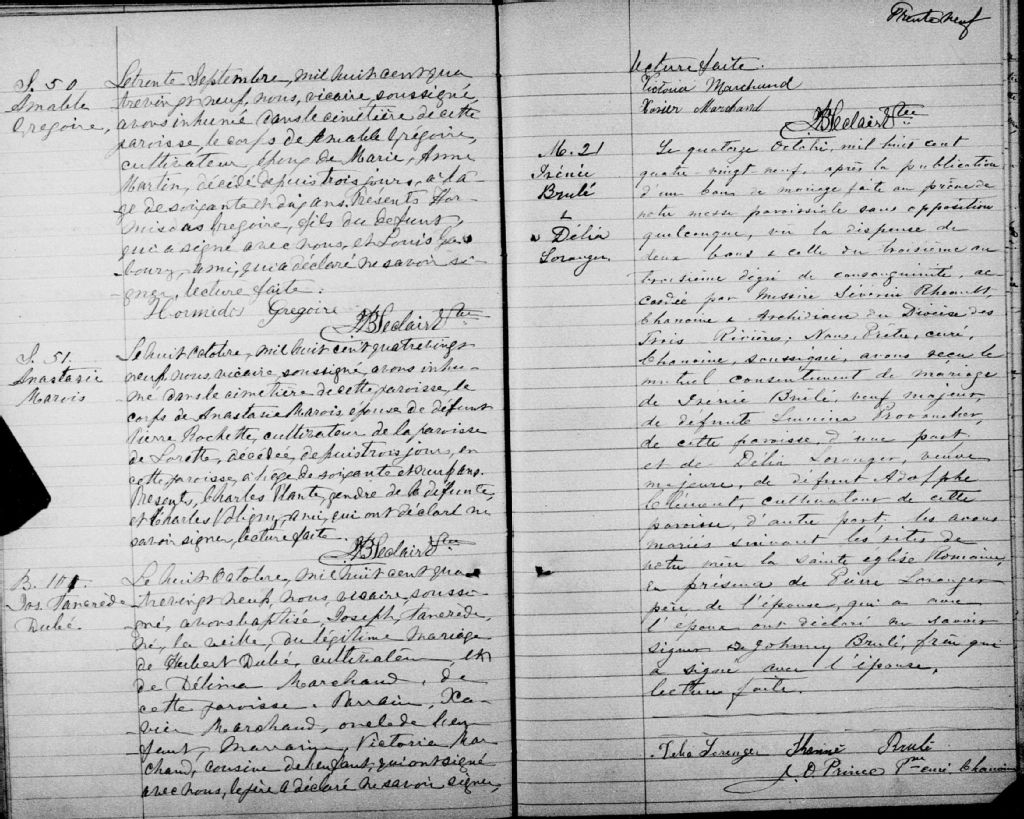 S. 50
Amable
Gregoire,
Le trente Septembre, mil huit cent qua
trevingt neuf, nous, vicaire, soussigné,
avons inhumé dans le cimetière de cette
paroisse le corps de Amable Grégoire,
cultivateur, époux de Marie, Anne
Martin, décédé depuis trois jours, a l'â-
ge de soixante et dix ans. Présents Hor-
misdas Gregoire, fils du défunt,
qui a signé avec nous, et Louis
ami, qui a déclaré ne savoir si-
gner, lecture faite.
Hormidas Gregoire
JB Leclair Ptre
S. 51.
Anastasie
Marois
Le huit Octobre, mil huit cent quatrevingt
neuf, nous, vicaire soussigné, avons inhu-
mé dans le cimetière de cette paroisse, le
corps de Anastasie Marois épouse de défunt
Pierre Rochette, cultivateur de la paroisse
de Lorette, décédée, depuis trois jours, en
cette paroisse, a l'âge de soixante et neuf ans.
Présents, Charles Plante, gendre de la défunte,
et Charles Bligny, ami, qui ont déclaré ne
savoir signer, lecture faite.
JB Leclair Ptre
B. 101.
Jos. Tancrède
Dubé.
Le huit Octobre, mil huit cent qua
trevingt neuf, nous, vicaire, soussi-
gné, avons baptisé, Joseph, Tancrède,
né, la veille, du légitime mariage
de Hubert Dubé, cultivateur, et
de Délima Marchand, de
cette paroisse. Parrain, Xa-
vier Marchand, oncle de l'en-
fant, Marraine, Victoria Mar-
chand, cousine de l'enfant, qui ont signé
avec nous, le père a déclaré ne savoir signer,
Trente neuf
lecture faite.
Victoria Marchand
Xavier Marchand
JB Leclair Ptre
M. 21
Irénée
Brulé
&
Délia
Loranger
Le quatorze Octobre, mil huit cent
quatre-vingt neuf, après la publication
d'un banc de mariage faite au prône de
notre messe paroissiale sans opposition
quelconque, vu la dispense de
deux bans & celle du troisième au
troisième degré de consanguinité, ac-
cordée par Messire Sévérin Rheault,
Chanoine & Archidiacre du Diocèse des
Trois Rivières; Nous, Prêtre, curé,
Chanoine, soussigné, avons reçu le
mutuel consentement de mariage
de Irénée Brulé, veuf majeur,
de défunte Lumina Provencher,
de cette paroisse, d'une part,
et de Délia Loranger, veuve
majeure, de défunt Adolphe
Clément, cultivateur de cette
paroisse, d'autre part. les avons
mariés suivant les rites de
notre mère la sainte église Romaine,
en présence de Pierre Loranger
père de l'épouse, qui a avec
l'époux ont déclaré ne savoir
signer & de Johnney Brulé, frère qui
a signé avec l'épouse,
lecture faite.
Delia Loranger Brulé
J. O Prince Ptre curé Chanoine